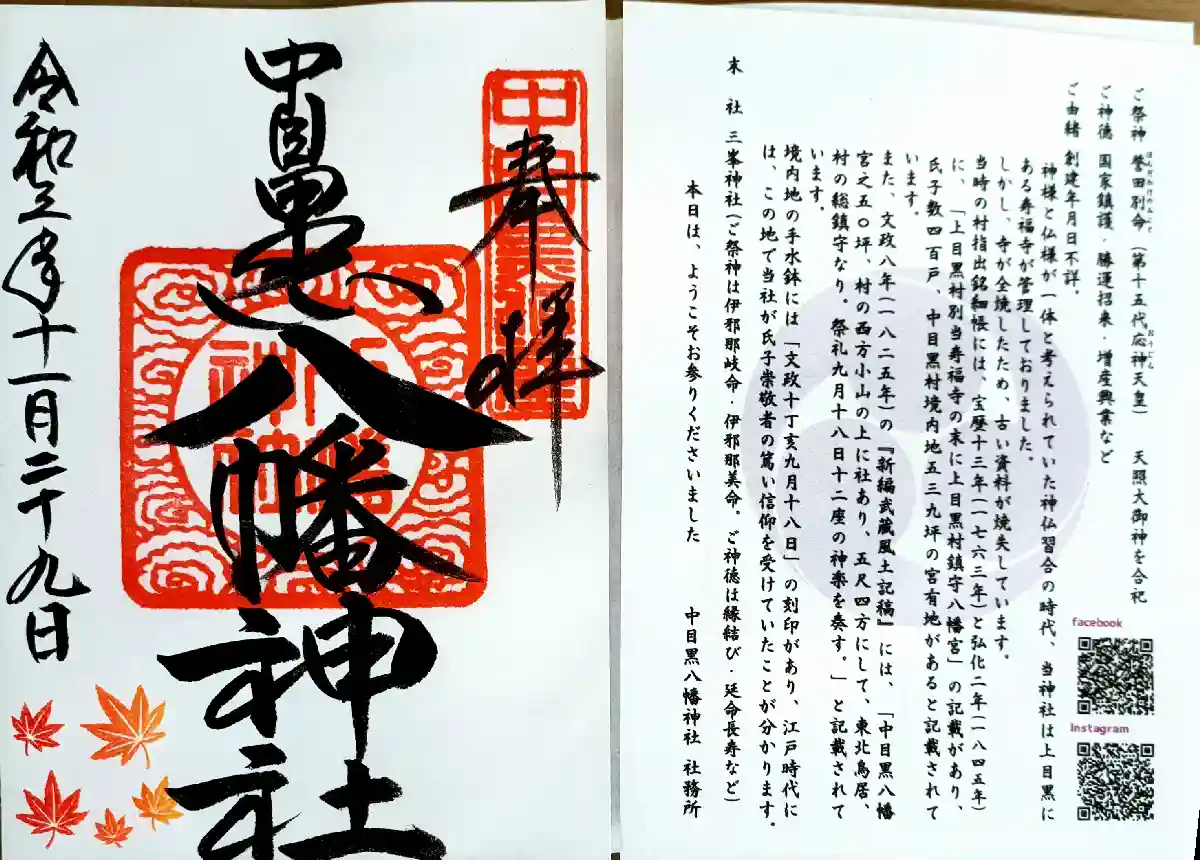 奉拝
中目黒八幡神社
令和三年十一月二十九日
ご祭神 誉田別命（第十五代応神天皇） 天照大御神を合祀
ほんだわけのみこと
おうじん
ご神徳 国家鎮護・勝運招来・増産興業など
ご由緒 創建年月日不詳。
神様と仏様が一体と考えられていた神仏習合の時代、当神社は上目黒に
ある寿福寺が管理しておりました。
しかし、寺が全焼したため、古い資料が焼失しています。
当時の村指出銘細帳には、宝暦十三年（一七六三年）と弘化二年（一八四五年）
に、「上目黒村別当寿福寺の末に上目黒村鎮守八幡宮」の記載があり、
氏子数四百戸、中目黒村境内地五三九坪の宮有地があると記載されて
います。
また、文政八年（一八二五年）の『新編武蔵風土記稿』には、「中目黒八幡
宮之五〇坪、村の西方小山の上に社あり、五尺四方にして、東北鳥居、
村の総鎮守なり。祭礼九月十八日十二座の神楽を奏す。」と記載されて
います。
境内地の手水鉢には「文政十丁亥九月十八日」の刻印があり、江戸時代に
は、この地で当社が氏子崇敬者の篤い信仰を受けていたことが分かります。
末 社 三峯神社（ご祭神は伊邪那岐命・伊邪那美命。ご神徳は縁結び・延命長寿など）
本日は、ようこそお参りくださいました 中目黒八幡神社 社務所
facebook
Instagram